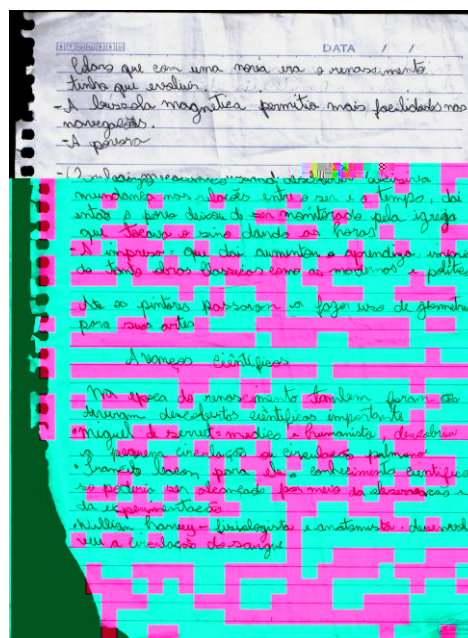 DATA / /
Claro que com uma nova era o renascimento
tinha que evoluir.
-A bussola magnética permitia mais facilidades nas
navegações.
-A povora
mundança nas relações entre o ser e o tempo, dai
então o povo deixou de ser monitorado pela igreja
que tocava o sino dando as horas
-A impressa, que dai aumentou a aprendiza
do tanto obras classicas como as modernas e politic
Ate os pintores passaram a fazer uso de geometri
para suas artes
Avanços Ciêntificos
Na epoca do renascimento tambem foram
descobertas cientificas importante
•Miguel de servet-medico e humanista descobriu
a pequena circulação ou circulação pulmona
•Francis bacon para ele o conhecimento cientifico
so poderia ser alcançado por meio da observação e
da experimentação
•William harvey - fisiologista e anatomista-desenvol
veu a circulação do sangue